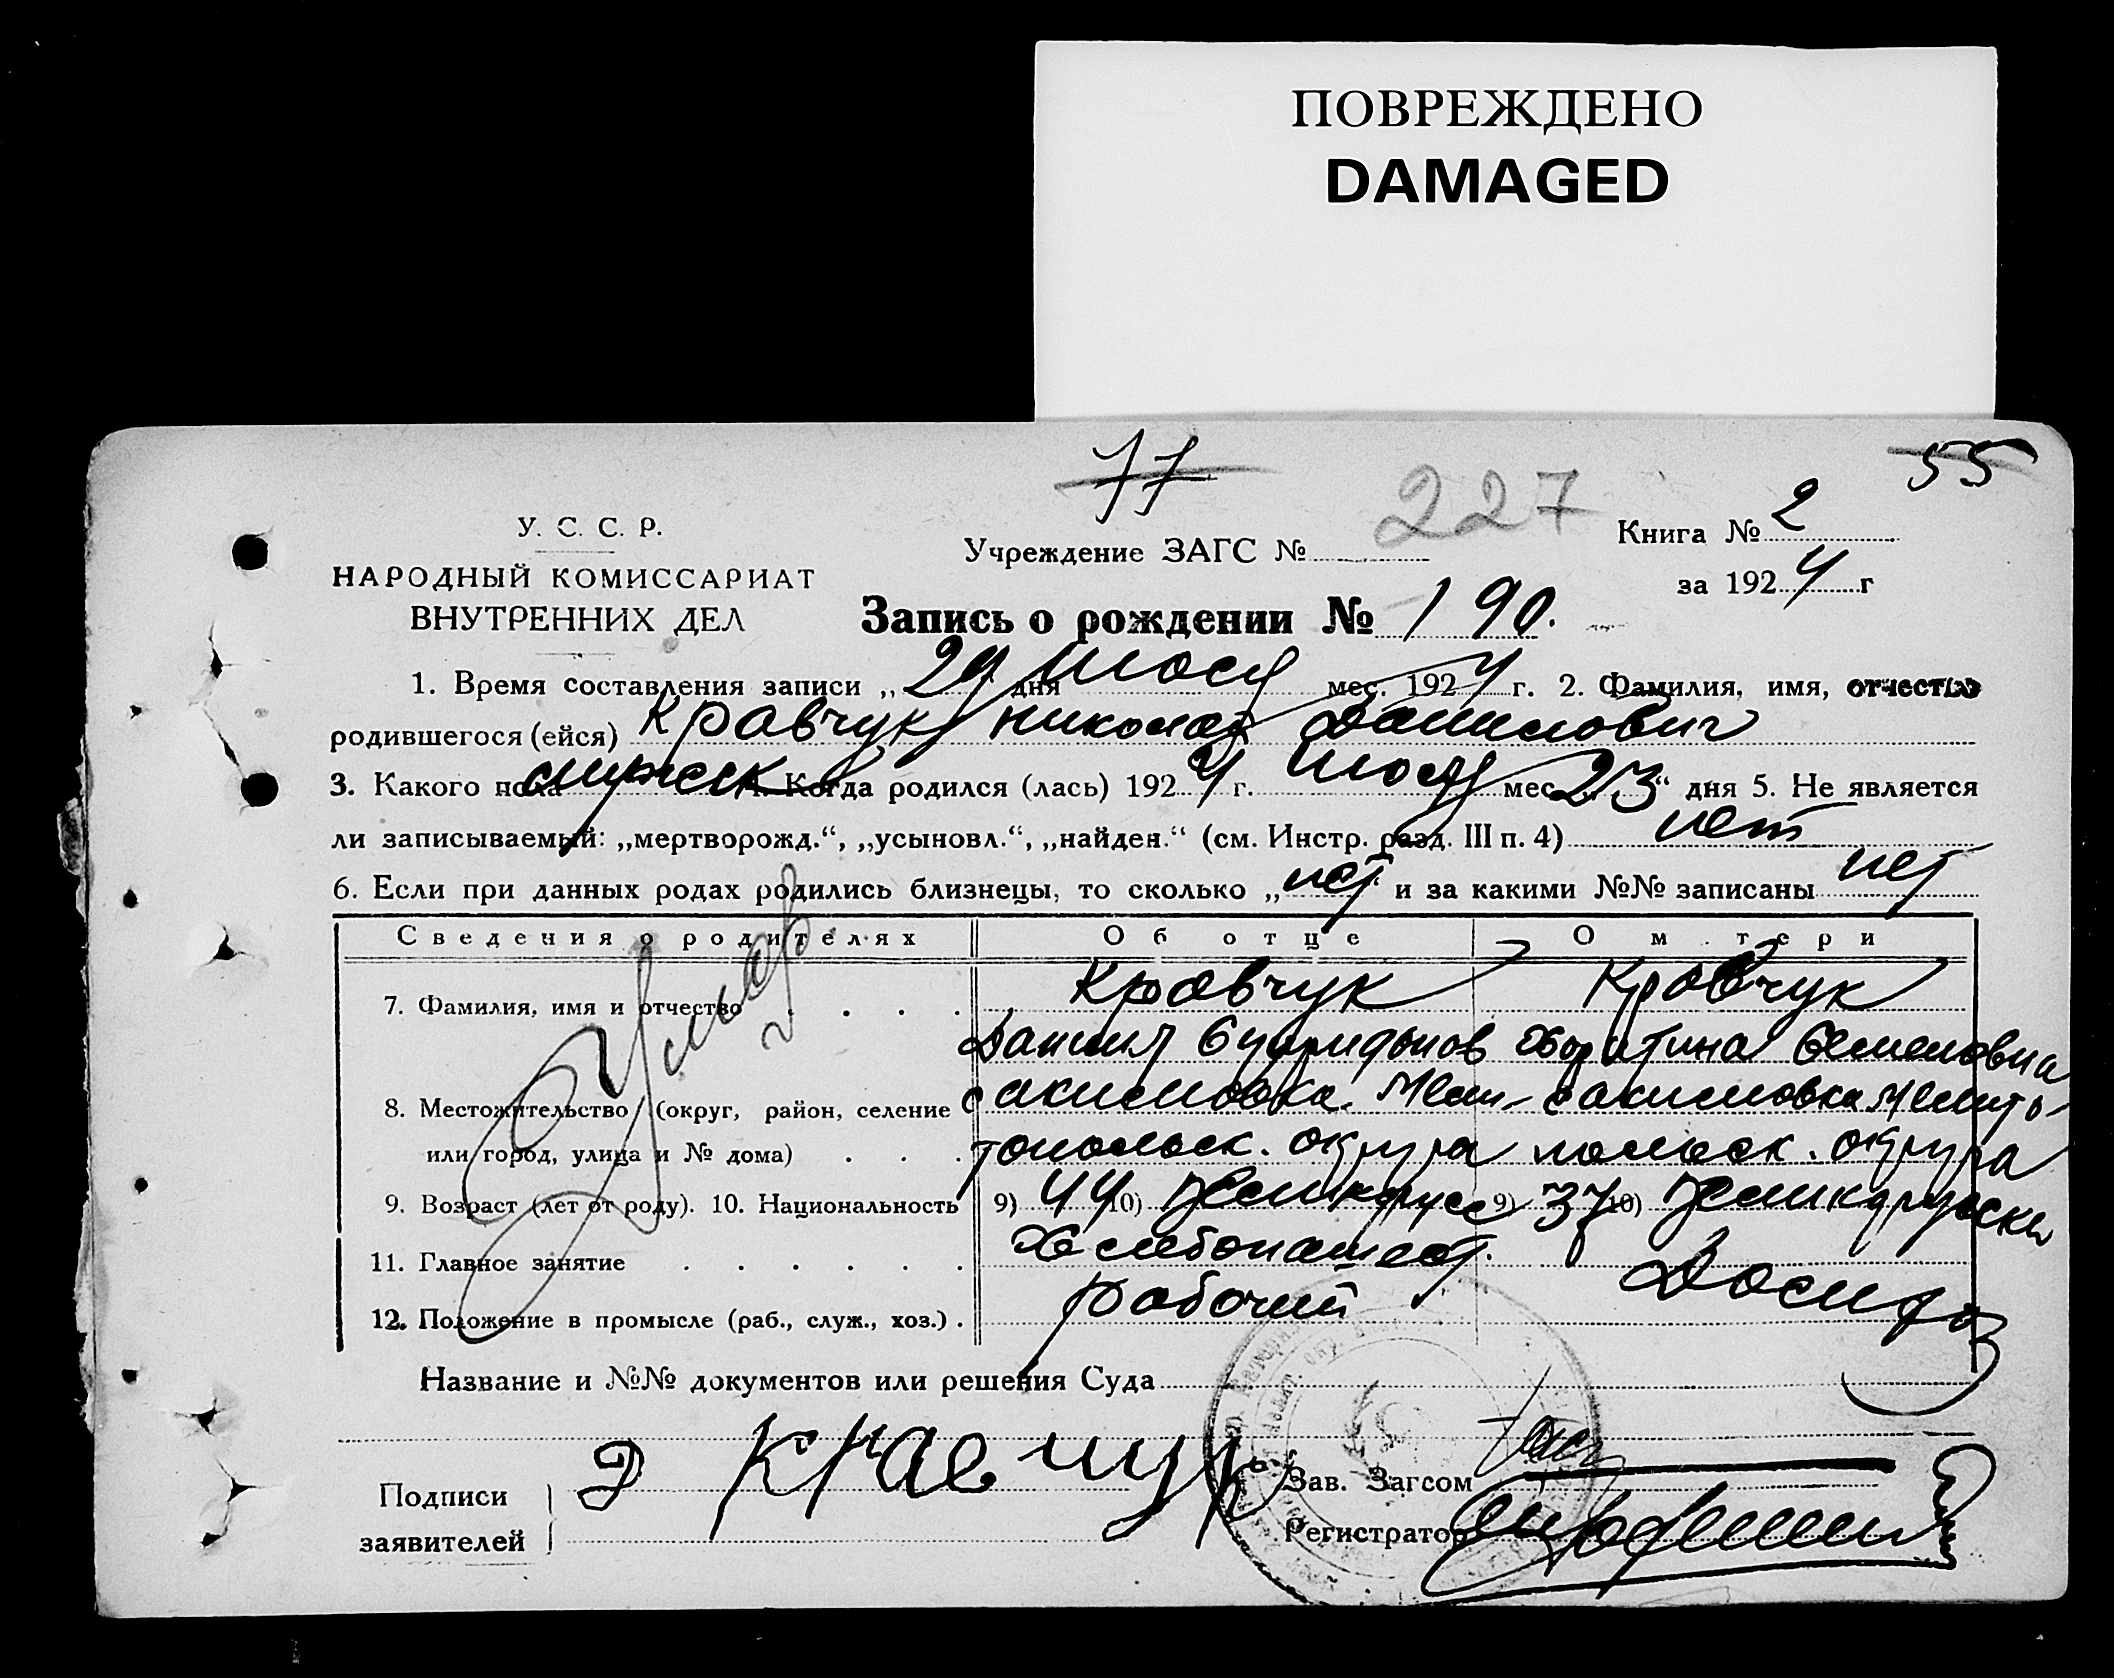 ПОВРЕЖДЕНО
DAMAGED
77
55
227
У. С. С. Р.
НАРОДНЫЙ КОМИССАРИАТ
ВНУТРЕННИХ ДЕЛ
Учреждение ЗАГС №
Книга № 2
за 1924 г
Запись о рождении № 190.
1. Время составления записи „29 дня Июля мес. 1924 г. 2. Фамилия, имя, отчество
родившегося (ейся) Кравчук Николай Данилович
3. Какого пола мужск 4. Когда родился (лась) 1924 г. Июля мес. „23“ дня 5. Не является
ли записываемый: „мертворожд.“, „усыновл.“, „найден.“ (см. Инстр. разд. III п. 4) нет
6. Если при данных родах родились близнецы, то сколько „нет“ и за какими №№ записаны нет
Сведения о родителях Об отце О матери
Умер
7. Фамилия, имя и отчество Кравчук Кравчук
Данил Спиридонов Харитина Семеновна
8. Местожительство (округ, район, селение с Акимовка Мели- с Акимовка Мелито-
или город, улица и № дома) топольск. округа польск. округа
9. Возраст (лет от роду). 10. Национальность 9) 44 10) Великорусс 9) 37 10) Великорусска
11. Главное занятие Хлебопашест.
12. Положение в промысле (раб., служ., хоз.) Рабочий
Название и №№ документов или решения Суда
Подписи
заявителей
Д Кравчук
Зав. Загсом
Регистратор